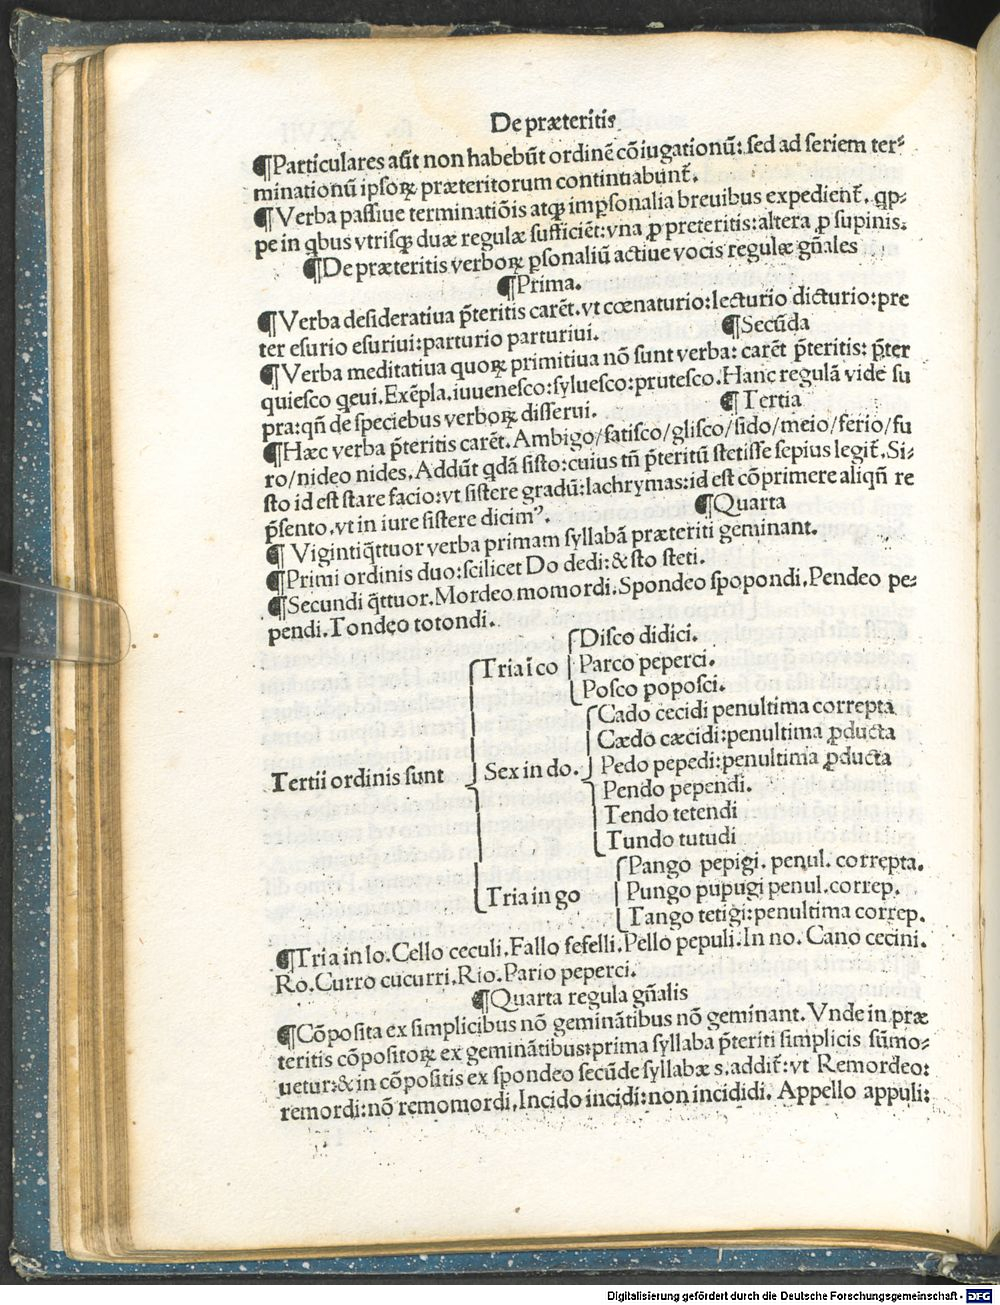 De præteritis
¶Particulares aũt non habebũt ordinẽ cõiugationũ: sed ad seriem ter⸗
minationũ ipsoꝝ præteritorum continuabunt̃.
¶Verba passiue terminatiõis atqꝫ imꝑsonalia breuibus expedient̃. qp⸗
pe in qbus vtrisqꝫ duæ regulæ sufficiẽt: vna ꝓ preteritis: altera ꝓ supinis.
¶De præteritis verboꝝ ꝑsonaliũ actiue vocis regulæ gñales
¶Prima.
¶Verba desideratiua p̃teritis carẽt. vt cœnaturio: lecturio dicturio: pre
ter esurio esuriui: parturio parturiui. ¶Secũda
¶Verba meditatiua quoꝝ primitiua nõ sunt verba: carẽt p̃teritis: p̃ter
quiesco qeui. Exẽpla. iuuenesco: syluesco: prutesco. Hanc regulã vide su
pra: qñ de speciebus verboꝝ disserui. ¶Tertia
¶Hæc verba p̃teritis carẽt. Ambigo/fatisco/glisco/sido/meio/ferio/fu
ro/nideo nides. Addũt qdã sisto: cuius tñ p̃teritũ stetisse sepius legit̃. Si⸗
sto id est stare facio: vt sistere gradũ: lachrymas: id est cõprimere aliqñ re
p̃sento. vt in iure sistere dicimꝰ. ¶Quarta
¶ Vigintiq̃ttuor verba primam syllabã præteriti geminant.
¶Primi ordinis duo: scilicet Do dedi: & sto steti.
¶Secundi q̃ttuor. Mordeo momordi. Spondeo spopondi. Pendeo pe⸗
pendi. Tondeo totondi.
Tertii ordinis sunt
Tria ĩ co
Disco didici.
Parco peperci.
Posco poposci.
Sex in do.
Cado cecidi penultima correpta
Cædo cæcidi: penultima ꝓducta
Pedo pepedi: penultima ꝓducta
Pendo pependi.
Tendo tetendi
Tundo tutudi
Tria in go
Pango pepigi. penul. correpta.
Pungo pupugi penul. correp.
Tango tetigi: penultima correp.
¶Tria in lo. Cello ceculi. Fallo fefelli. Pello pepuli. In no. Cano cecini.
Ro. Curro cucurri. Rio. Pario peperci.
¶Quarta regula gñalis
¶Cõposita ex simplicibus nõ geminãtibus nõ geminant. Vnde in præ
teritis cõpositoꝝ ex geminãtibus: prima syllaba p̃teriti simplicis sũmo⸗
uetur: & in cõpositis ex spondeo secũde syllabæ s. addit̃: vt Remordeo:
remordi: nõ remomordi. Incido incidi: non incididi. Appello appuli:
Digitalisierung gefördert durch die Deutsche Forschungsgemeinschaft - DFG